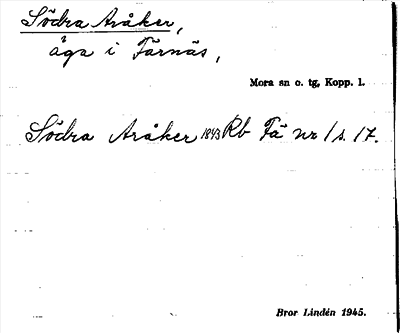 Södra Aråker,
äga i Färnäs,
Mora sn o. tg, Kopp. l.
Södra Aråker 1843 Rb Fä nr 1 s. 17.
Bror Lindén 1945.